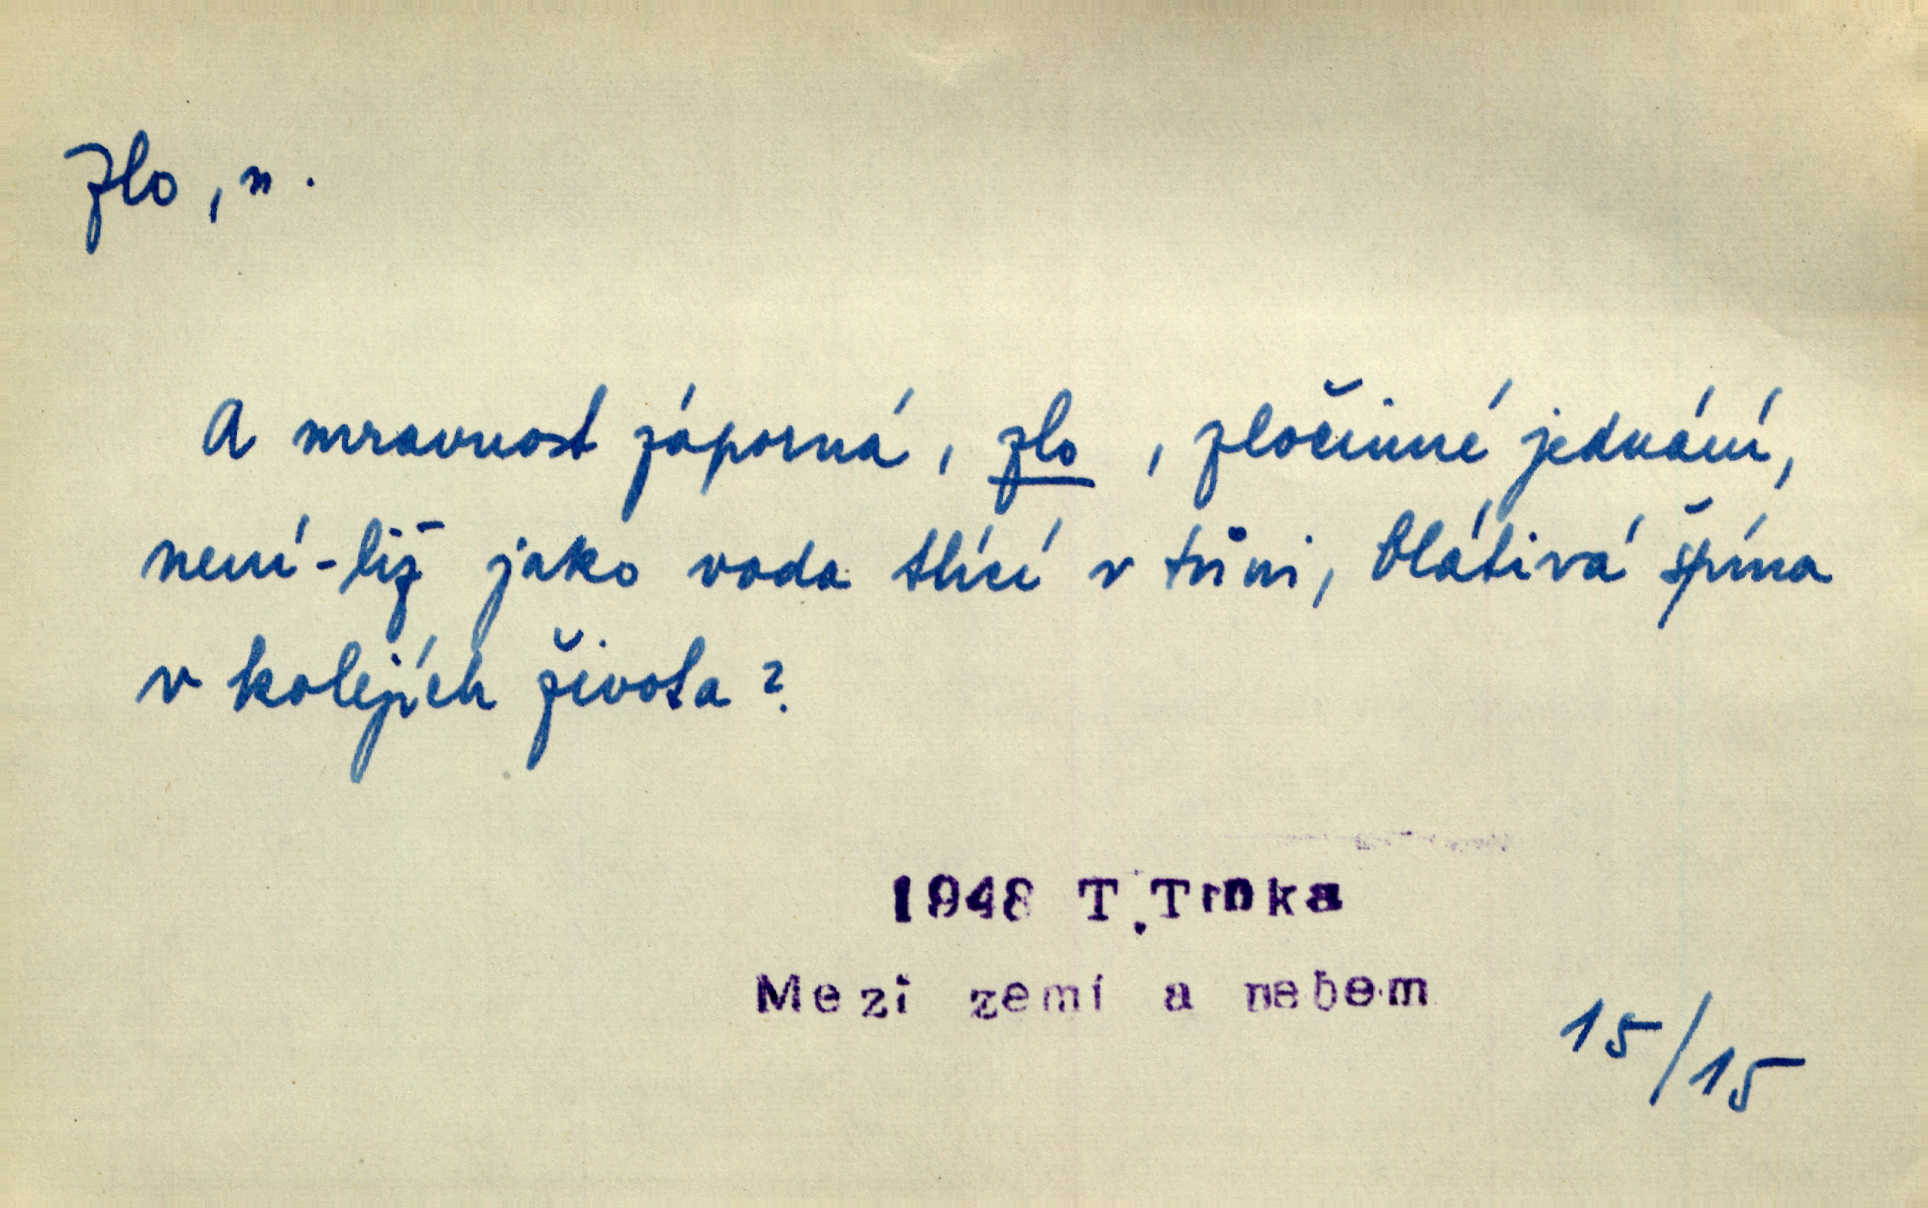 Zlo, n.
A mravnost záporná, zlo, zločinné jednání,
není-liž jako voda tlící v tůni, blátivá špína
v kolejích života?
1948 T.Trnka
Mezi zemí a nebem
15/15